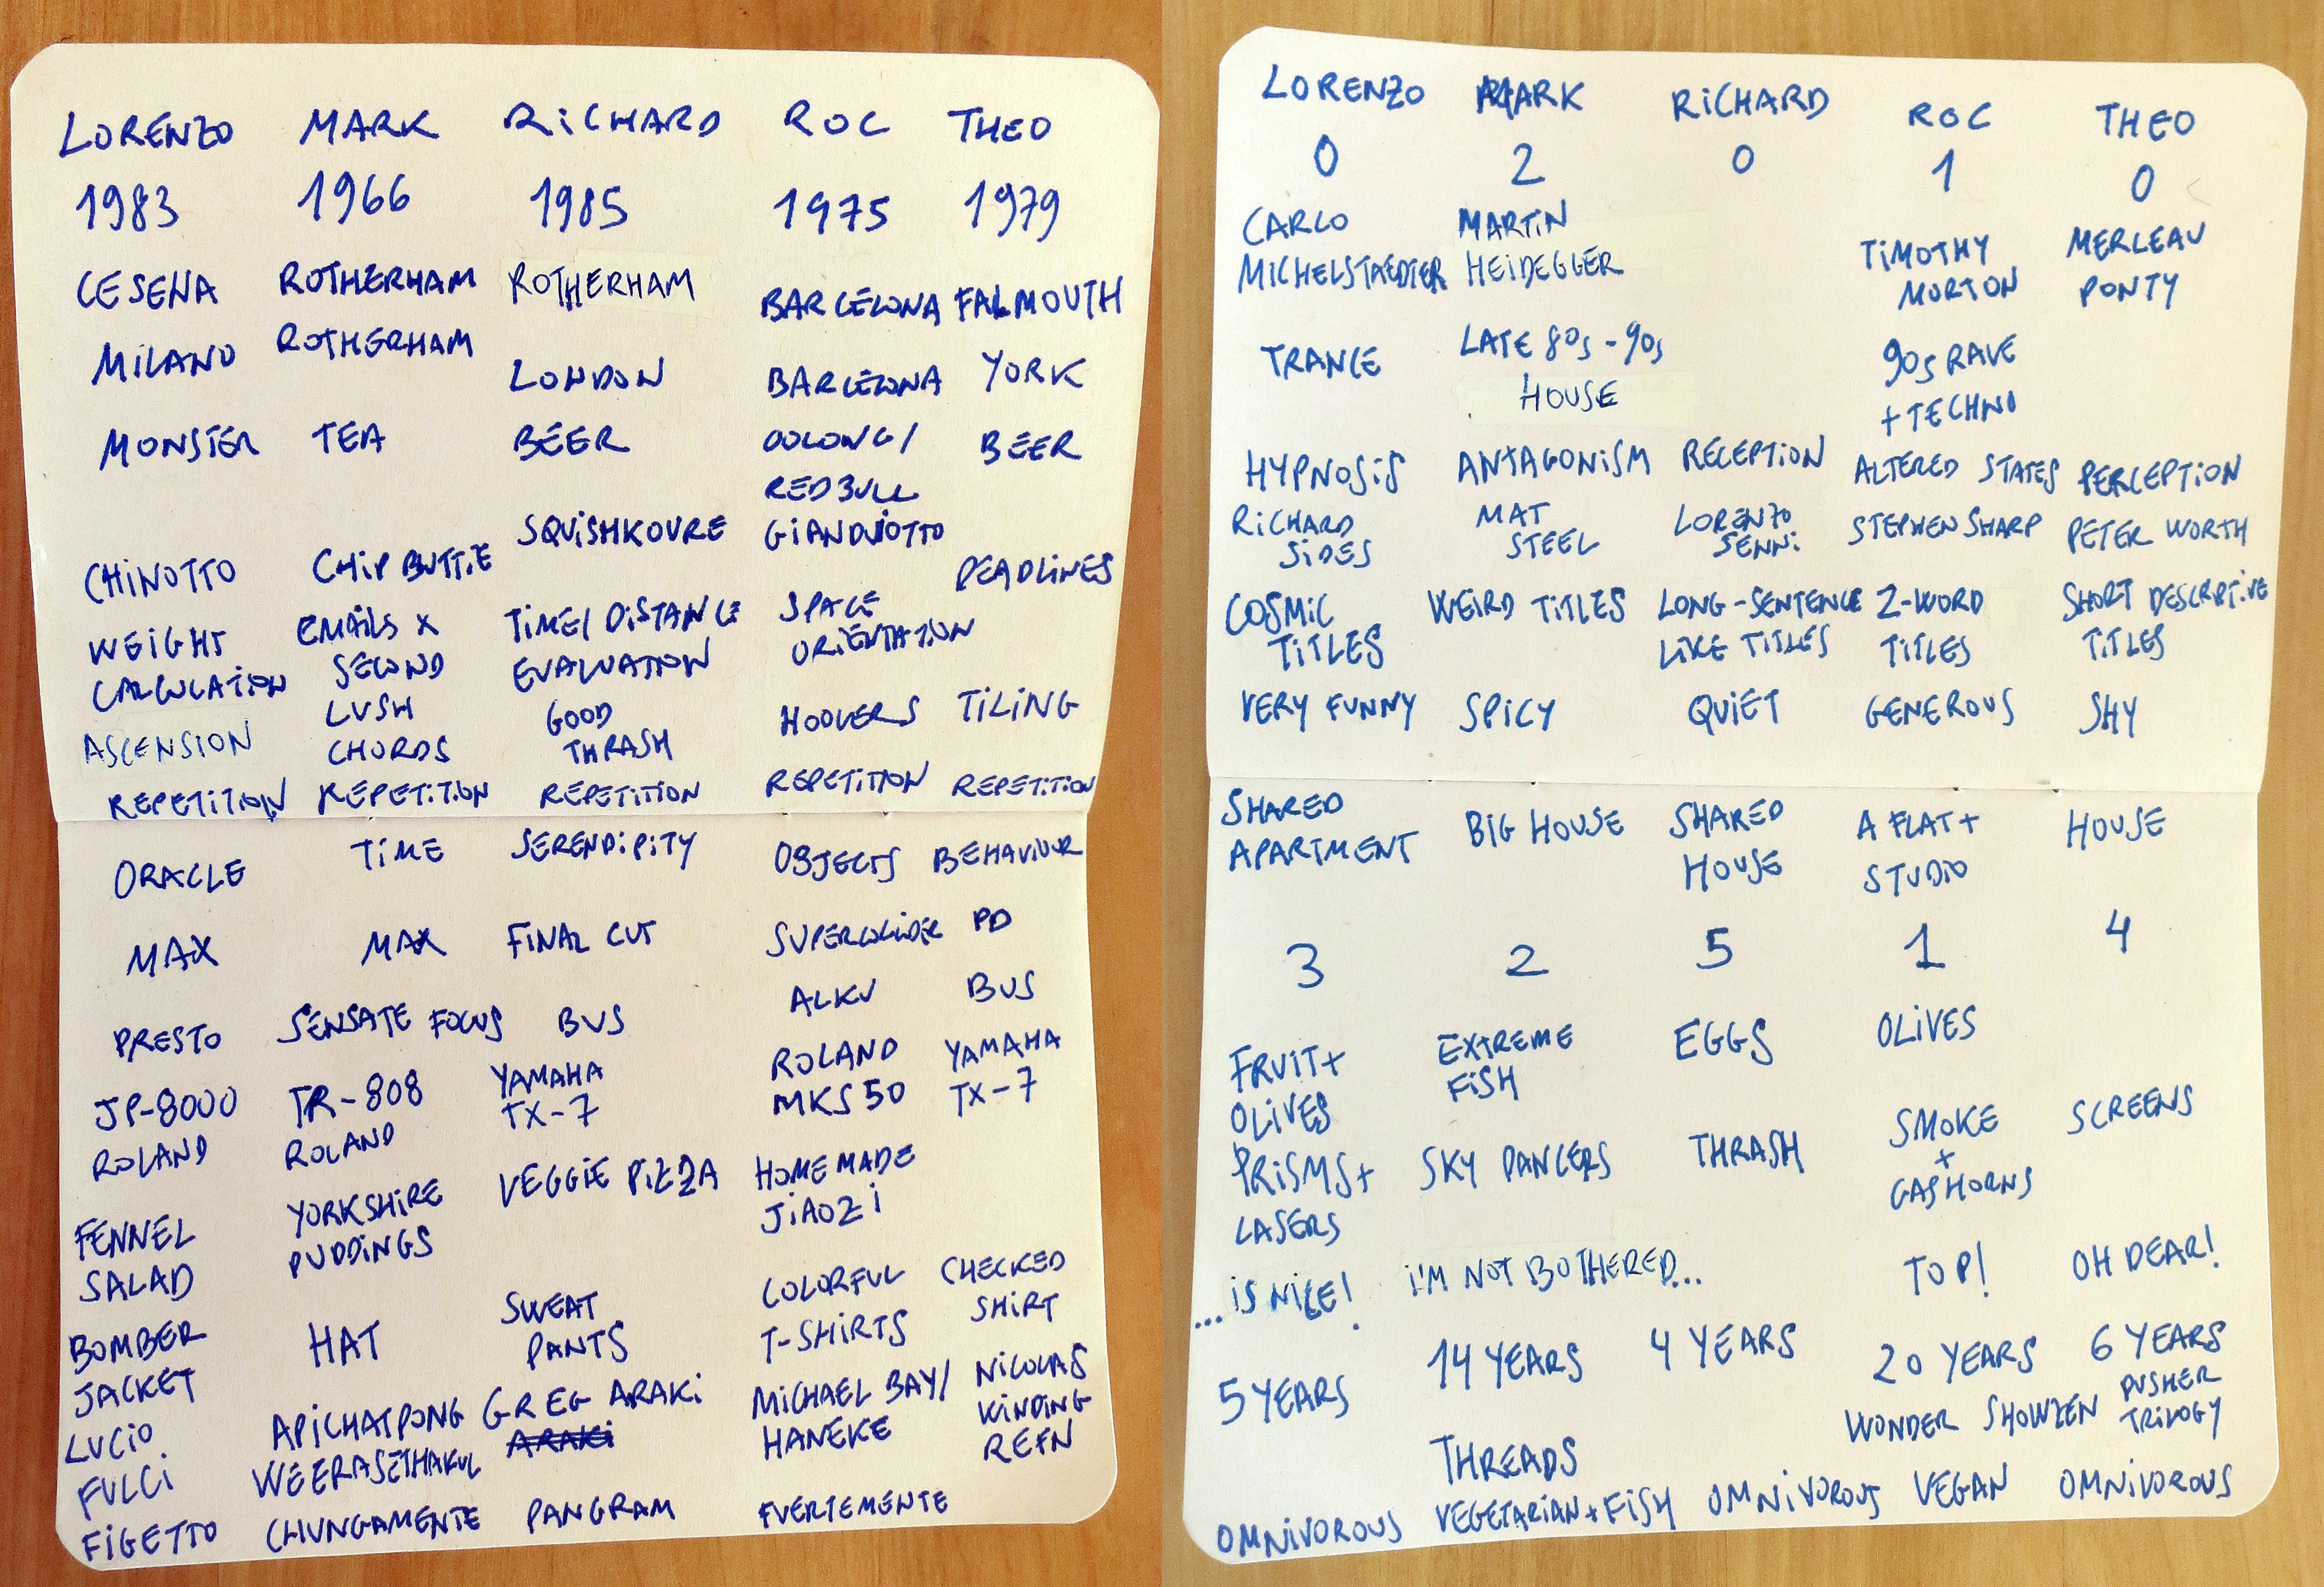 LORENZO MARK RiCHARD ROC THEO
1983 1966 1985 1975 1979
CESENA ROTHERHAM ROTHERHAM BARCELONA FALMOUTH
MiLANO ROTHERHAM LONDON BARCELONA YORK
MONSTER TEA BEER OOLONG/ BEER
REDBULL
CHiNOTTO CHiP BUTTiE SQUiSHKOVRE GiANDUiOTTO DEADLiNES
WEiGHT EMAiLS X TiME/ DiSTANCE SPACE
CALCULATiON SECOND EVALUATiON ORiENTATiON
ASCENSION LUSH GOOD HOOVERS TiLiNG
CHORDS THRASH
REPETiTiON REPETiTiON REPETiTiON REPETiTiON REPETiTiON
ORACLE TiME SERENDiPiTY OBJECTS BEHAViOUR
MAX MAX FiNAL CUT SUPERCOLLiDER PD
PRESTO SENSATE FOCUS BUS ALKU BUS
JP-8000 TR-808 YAMAHA ROLAND YAMAHA
ROLAND ROLAND TX-7 MKS 50 TX-7
FENNEL YORKSHiRE VEGGiE PiZZA HOMEMADE
SALAD PUDDiNGS JiAOZi
BOMBER HAT SWEAT COLORFUL CHECKED
JACKET PANTS T-SHiRTS SHiRT
LUCiO APiCHATPONG GREG ARAKi MiCHAEL BAY/ NiCOLAS
FULCi WEERASETHAKUL ARAKi HANEKE WiNDiNG
REFN
FiGETTO CHUNGAMENTE PANGRAM FUERTEMENTE
LORENZO MARK RiCHARD ROC THEO
0 2 0 1 0
CARLO MARTiN TiMOTHY MERLEAU
MiCHELSTAEDTER HEiDEGGER MORTON PONTY
TRANCE LATE 80s-90s 90s RAVE
HOUSE + TECHNO
HYPNOSiS ANTAGONiSM RECEPTiON ALTERED STATES PERCEPTiON
RiCHARD MAT LORENZO STEPHEN SHARP PETER WORTH
SiDES STEEL SENNi
COSMiC WEiRD TiTLES LONG-SENTENCE 2-WORD SHORT DESCRiPTiVE
TiTLES LiKE TiTLES TiTLES TiTLES
VERY FUNNY SPiCY QUiET GENEROUS SHY
SHARED BiG HOUSE SHARED A FLAT+ HOUSE
APARTMENT HOUSE STUDiO
3 2 5 1 4
FRUiT+ EXTREME EGGS OLiVES
OLiVES FiSH
PRiSMS+ SKY DANCERS THRASH SMOKE SCREENS
LASERS + 
GASHORNS
...iS NiCE! i'M NOT BOTHERED... TOP! OH DEAR!
5 YEARS 14 YEARS 4 YEARS 20 YEARS 6 YEARS
THREADS WONDER SHOWZEN PUSHER
TRiLOGY
OMNiVOROUS VEGETARiAN+FiSH OMNiVOROUS VEGAN OMNiVOROUS